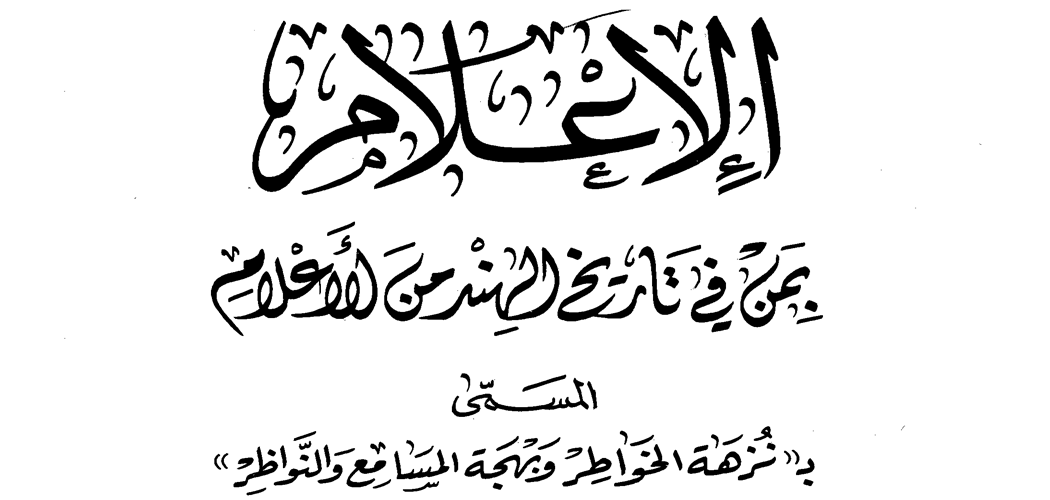 الإعلام
بمن في تاريخ الهند من الأعلام
المسمى
بـ «نزهة الخواطر وبهجة المسامع والنواظر»